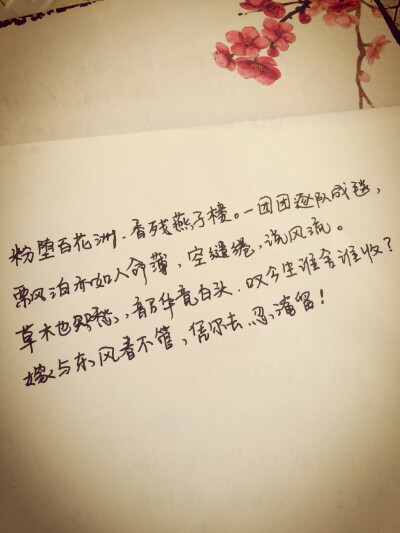 粉堕百花洲.香残燕子楼。一团团逐队成毬,
飘泊亦如人命薄,空缱绻,说风流。
草木也知愁,韶华竟白头.叹今生谁舍谁收?
嫁与东风春不管,凭尔去,忍淹留!